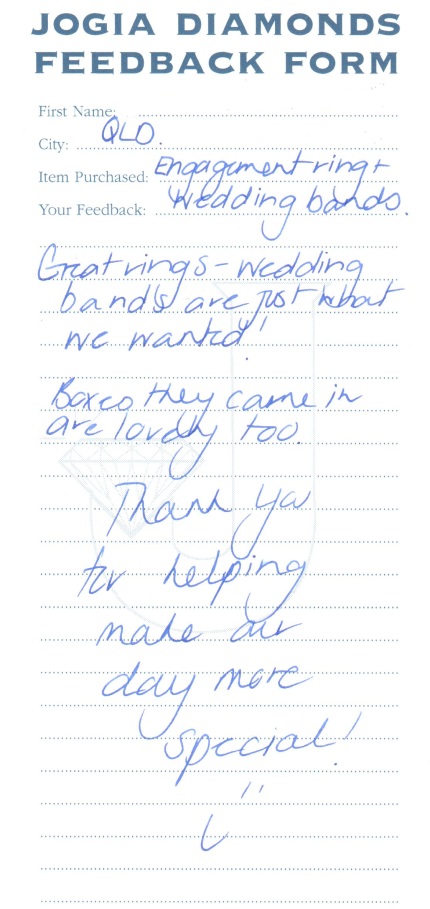 JOGIA DIAMONDS
FEEDBACK FORM
First Name:
City: QLD.
Item Purchased: Engagement ring +
Your Feedback: Wedding bands.
Great rings - wedding
bands are just what
we wanted!
Boxes they came in
are lovely too.
Thank you
for helping
make our
day more
special!